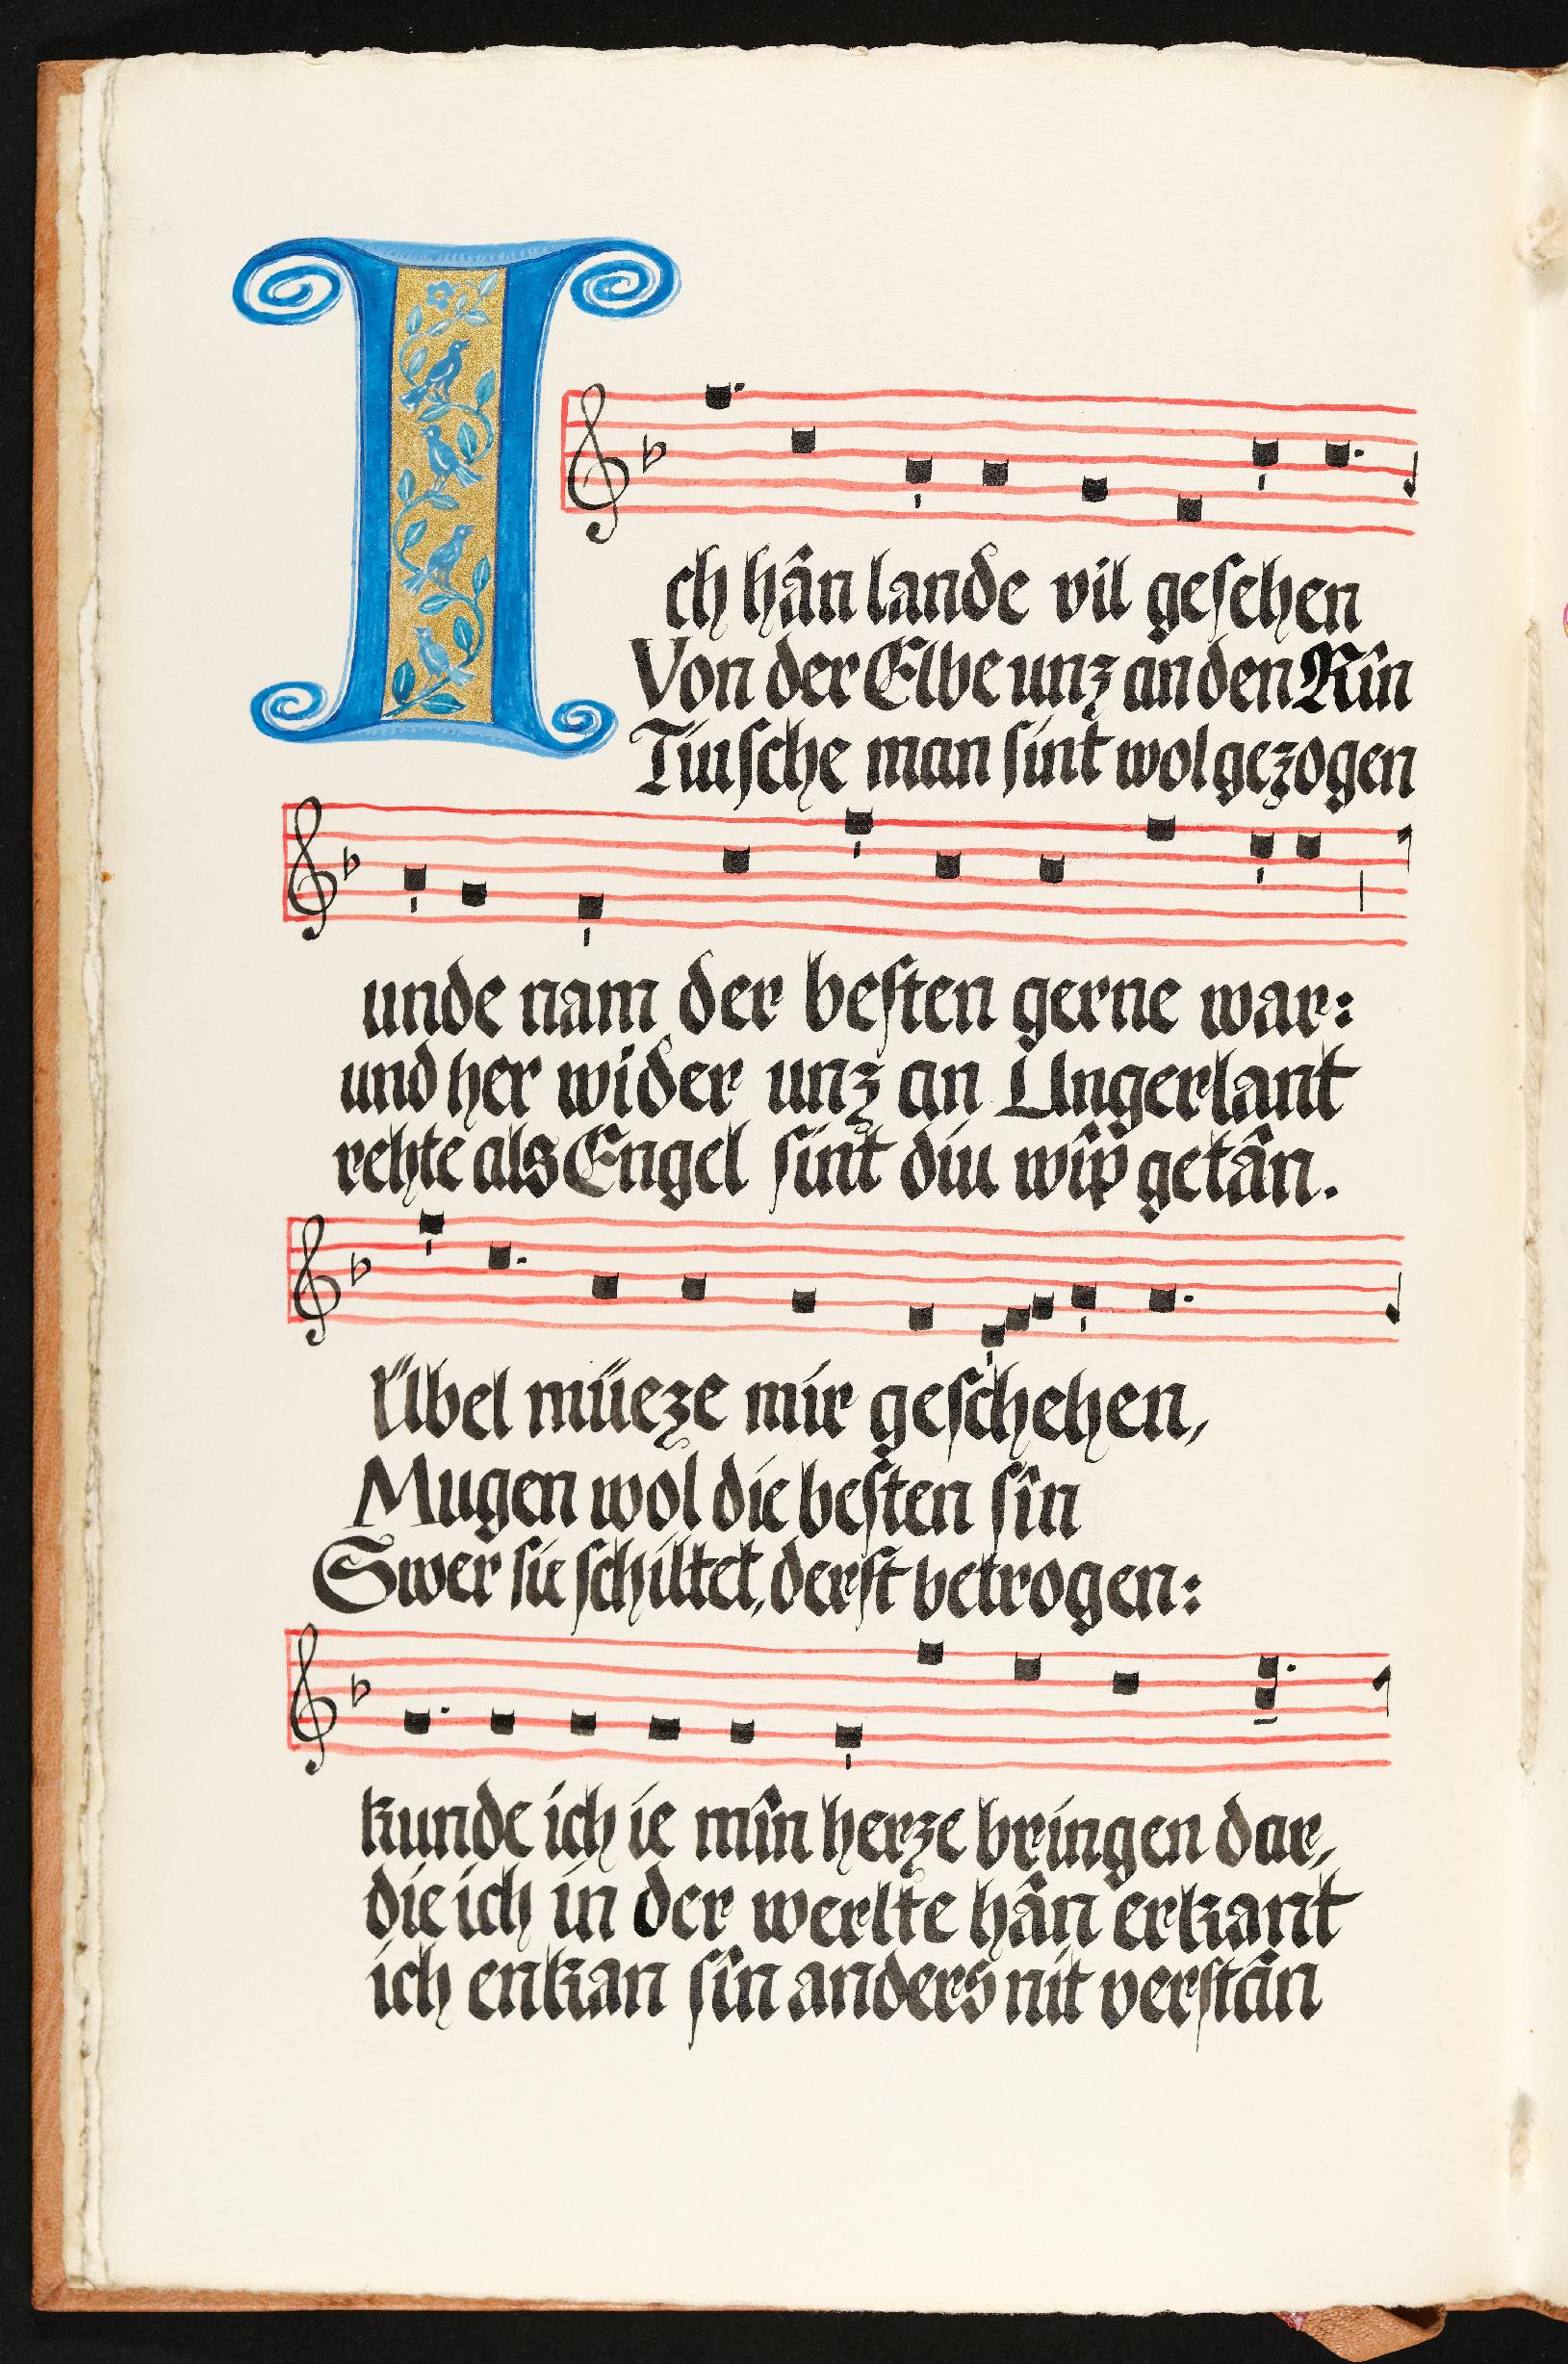 Ich hân lande vil gesehen
Von der Elbe unz an den Rîn
Tiusche man sint wol gezogen
unde nam der besten gerne war:
und her wider unz an Ungerlant
rehte als Engel sint diu wîp getân.
Übel müeze mir geschehen,
Mugen wol die besten sîn
Swer sie schiltet, derst betrogen:
kunde ich ie mîn herze bringen dar,
die ich in der werlte hân erkant
ich enkan sîn anders nit verstân